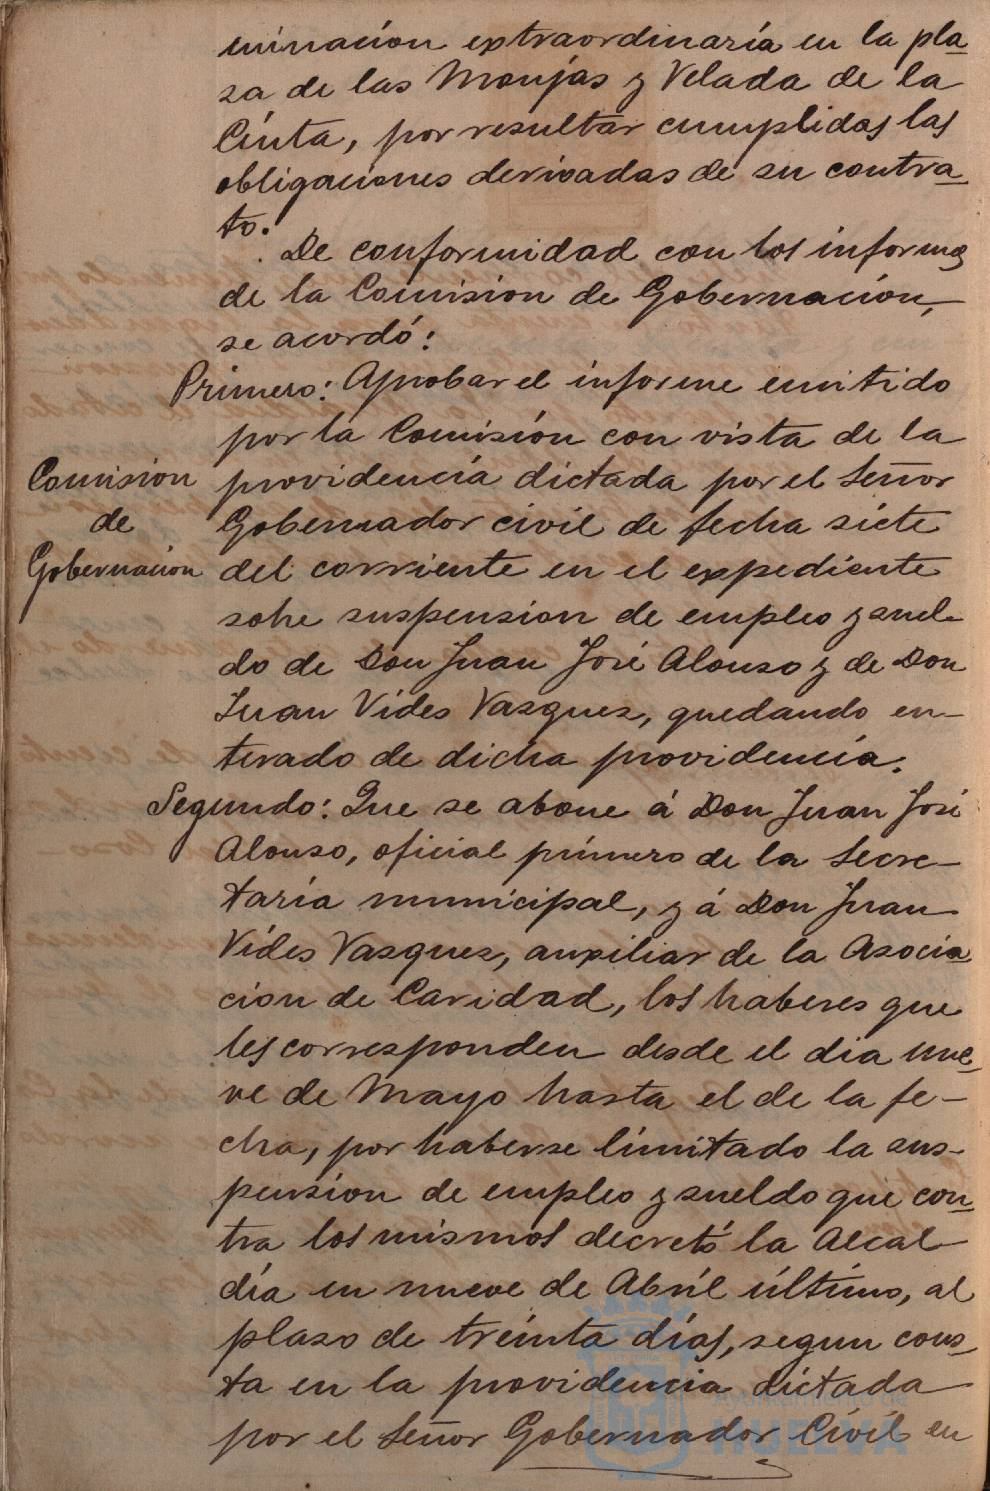 minacion extraordinaria en la pla
za de las Monjas y Velada de la
Cinta, por resultar cumplidas las
obligaciones derivadas de su contra
to.
De conformidad con los informes
de la Comision de Gobernación,
se acordó:
Primero: Aprobar el informe emitido
por la Comisión con vista de la
Comision
de
Gobernacion
providencia dictada por el Señor
Gobernador civil de fecha siete
del corriente en el expediente
sobre suspension de empleo y suel-
do de Don Juan José Alonso y de Don
Juan Vides Vazquez, quedando en-
terado de dicha providencia.
Segundo: Que se abone á Don Juan José
Alonso, oficial primero de la Secre-
taría municipal, y á Don Juan
Vides Vazquez, auxiliar de la Asocia
cion de Caridad, los haberes que
les corresponden desde el dia nue
ve de Mayo hasta el de la fe-
cha, por haberse limitado la sus-
pension de empleo y sueldo que con
tra los mismos decretó la Alcal
día en nueve de Abril último, al
plazo de treinta días, segun cons
ta en la providencia dictada
por el Señor Gobernador Civil en
Ayuntamiento de
HUELVA